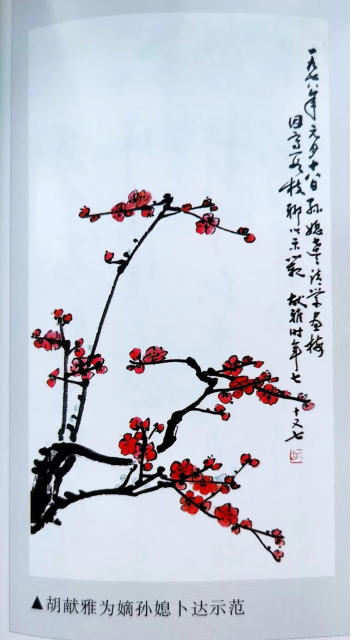 一九七八年元月十八日孙媳达请学画梅
因写枝聊以示范 献雅时年七十又七
▲胡献雅为嫡孙媳卜达示范